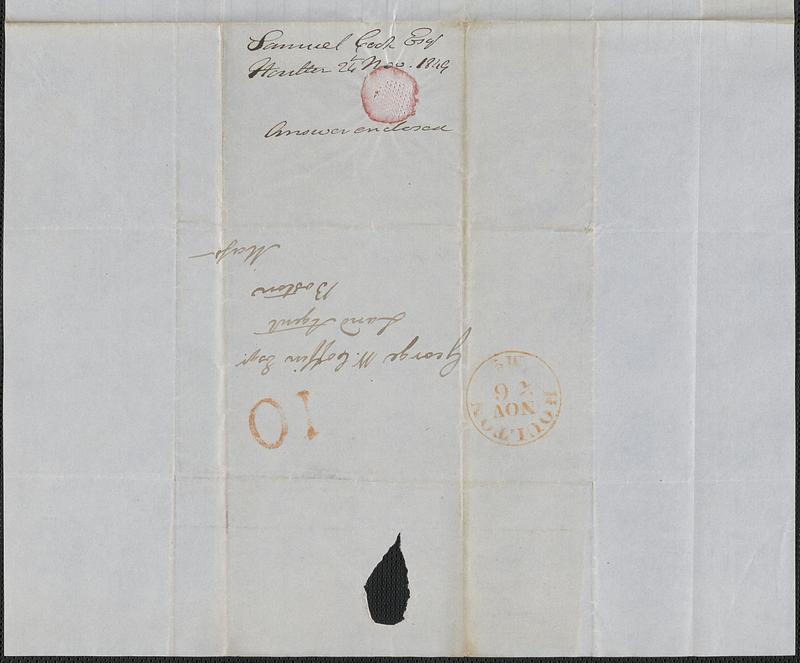 Samuel Cook Esqr
Houlton 24 Nov. 1849
Answer enclosed
George W. Coffin Esqr
Land Agent
Boston
Mass
10
HOULTON
NOV
26